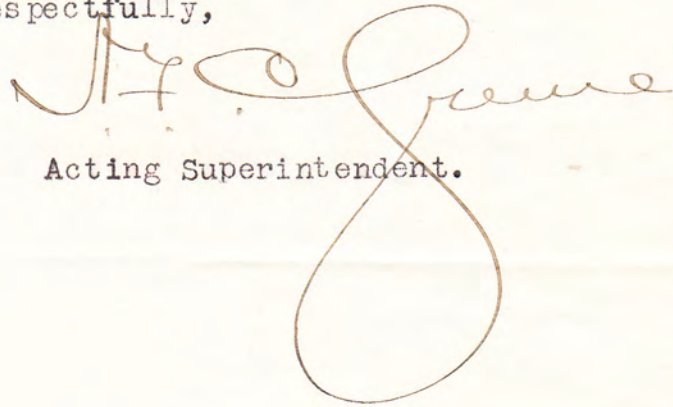 espectfully,
Acting Superintendent.